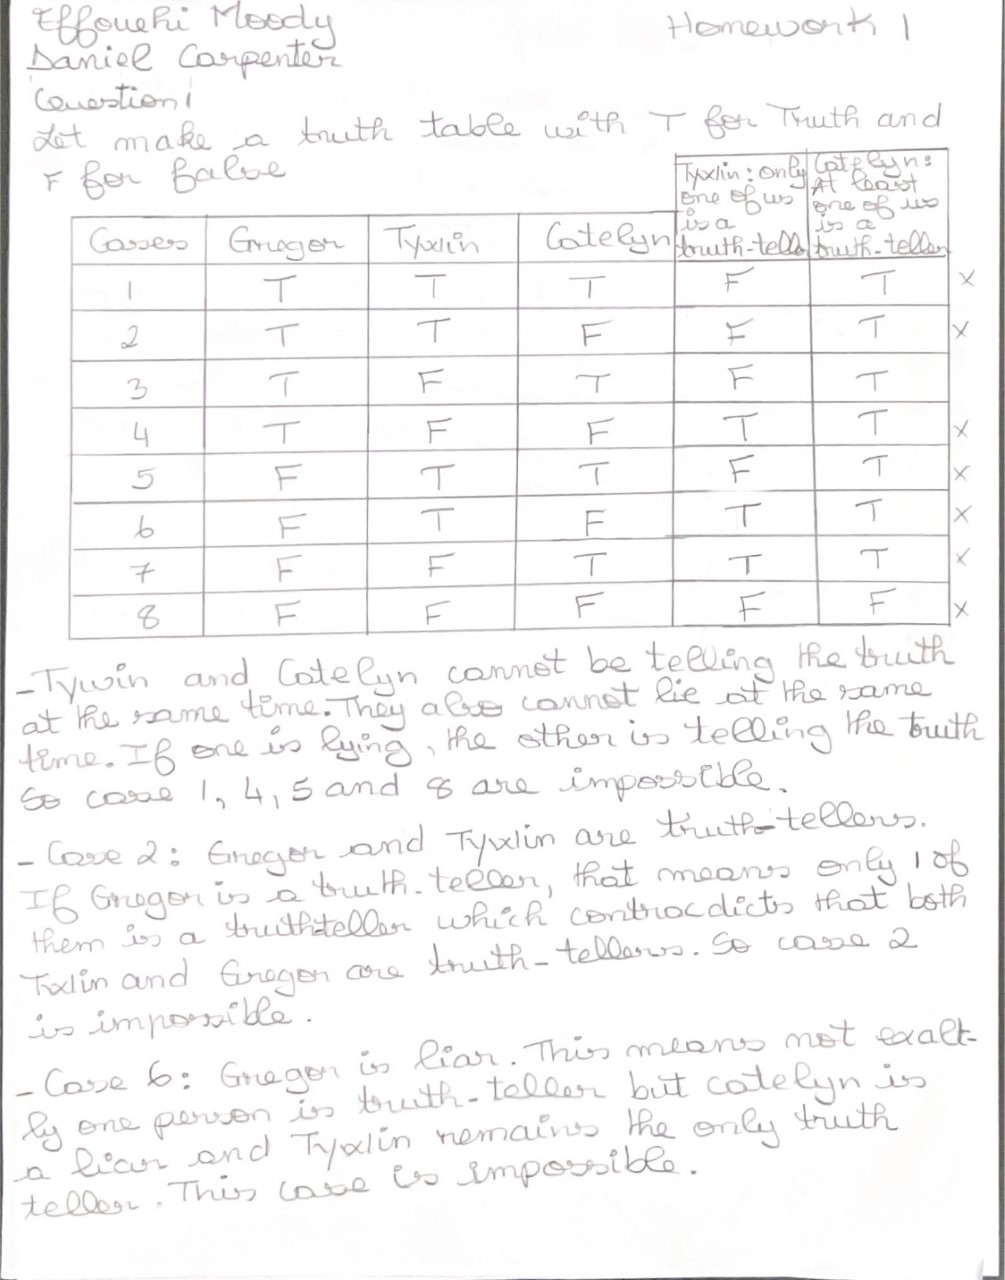 Effouehi Moody
Homework 1
Daniel Carpenter
Question 1
Let make a truth table with T for Truth and
F for false
Cases | Gregor | Tyxlin | Catelyn | Tyxlin: only one of us is a truth-telle | Catelyn: At least one of us is a truth-teller
1 | T | T | T | F | T | x
2 | T | T | F | F | T | x
3 | T | F | T | F | T
4 | T | F | F | T | T | x
5 | F | T | T | F | T | x
6 | F | T | F | T | T | x
7 | F | F | T | T | T | x
8 | F | F | F | F | F | x
- Tywin and Catelyn cannot be telling the truth
at the same time. They also cannot lie at the same
time. If one is lying, the other is telling the truth
So case 1, 4, 5 and 8 are impossible.
- Case 2: Gregor and Tyxlin are truth-tellers.
If Gregor is a truth-teller, that means only 1 of
them is a truth-teller which contracdicts that both
Txlin and Gregor are truth-tellers. So case 2
is impossible.
- Case 6: Gregor is liar. This means not exalt-
ly one person is truth-teller but catelyn is
a liar and Tyxlin remains the only truth
teller. This case is impossible.